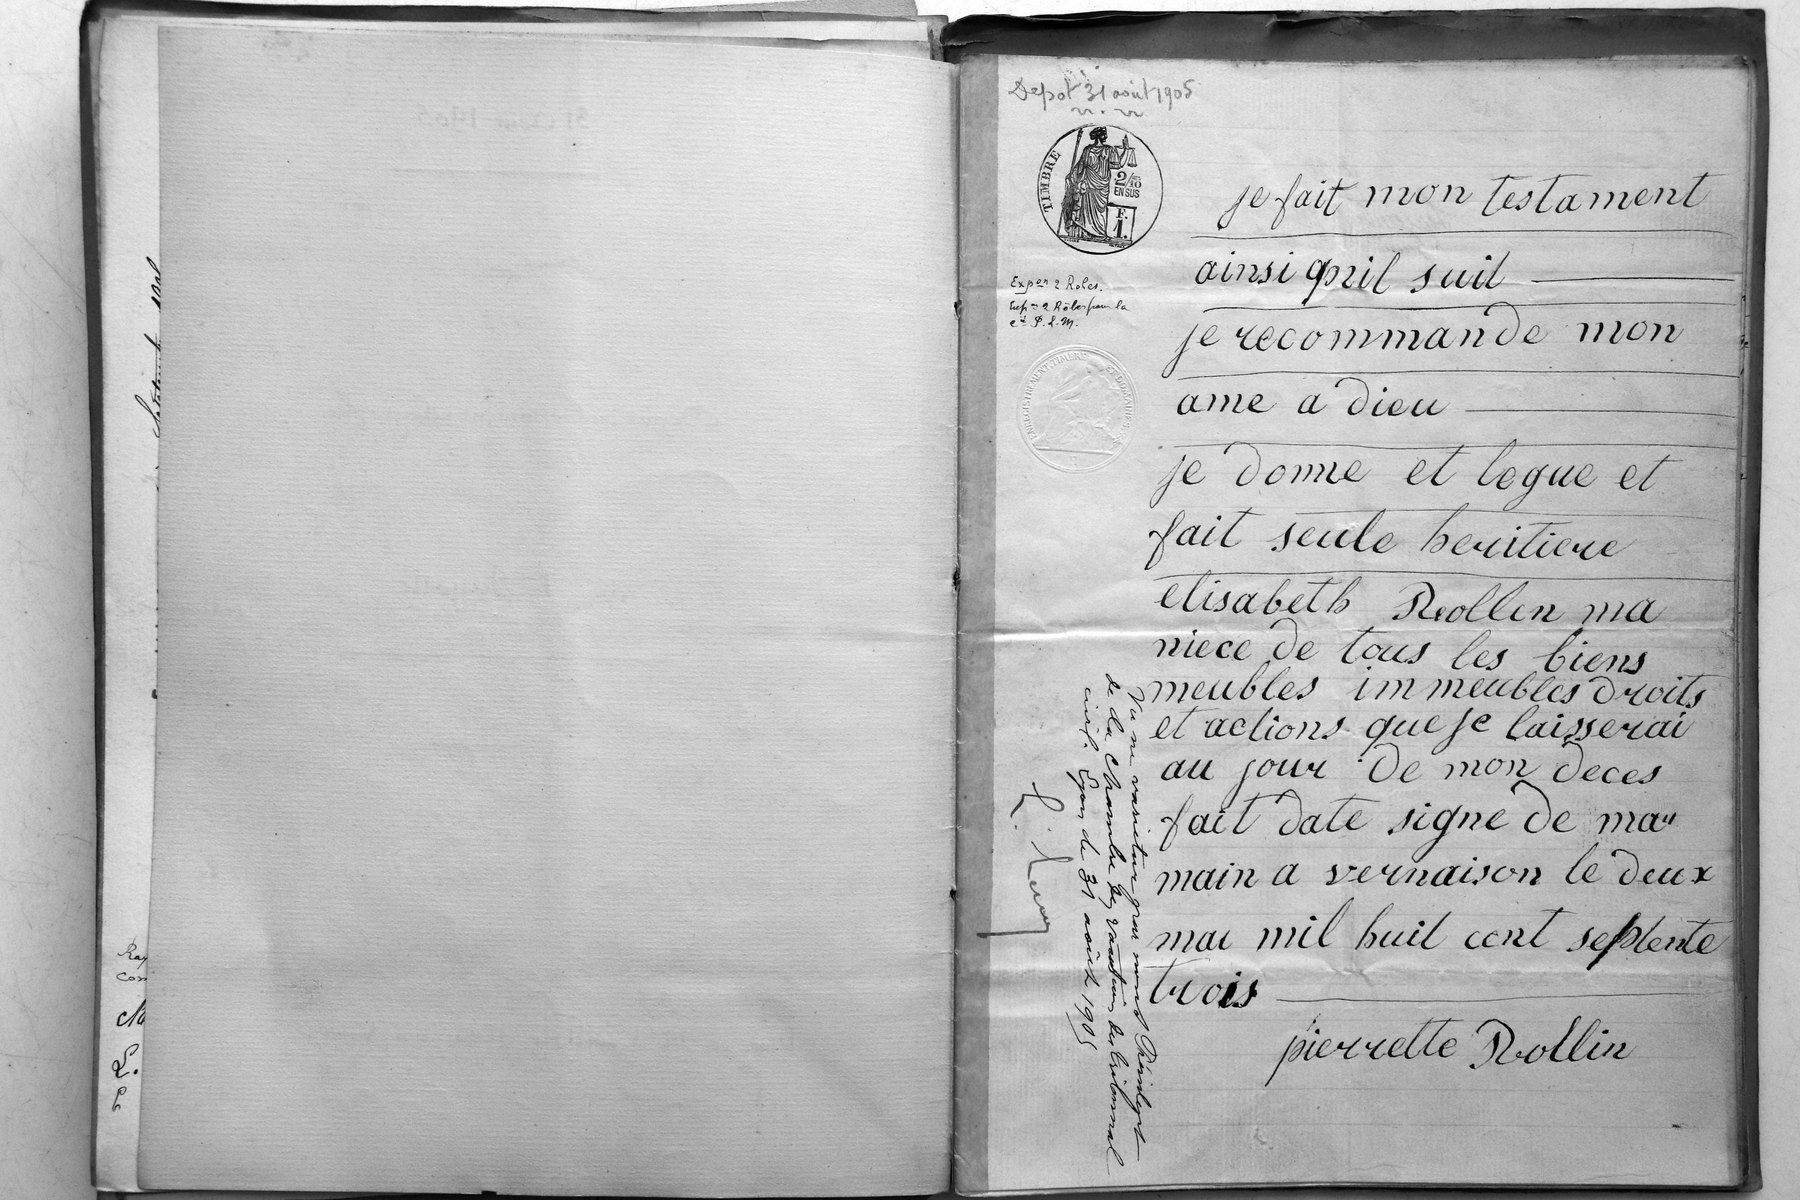 Depot 31 août 1905
TIMBRE
2/10
EN SUS
F.
1.
je fait mon testament
ainsi qu'il suit
Expon 2 Roles.
2 Rôles pour la
cie P. L. M.
ENREGISTREMENT TIMBRE ET DOMAINES
je recommande mon
ame a dieu
je donne et legue et
fait seule heritiere
elisabeth Rollin ma
niece de tous les biens
meubles immeubles droits
et actions que je laisserai
au jour de mon deces
fait date signe de ma
main a vernaison le deux
mai mil huit cent septente
trois
pierrette Rollin
Vu ne varietur par nous Président
de la Chambre des vacations du tribunal
civil. Lyon le 31 août 1905